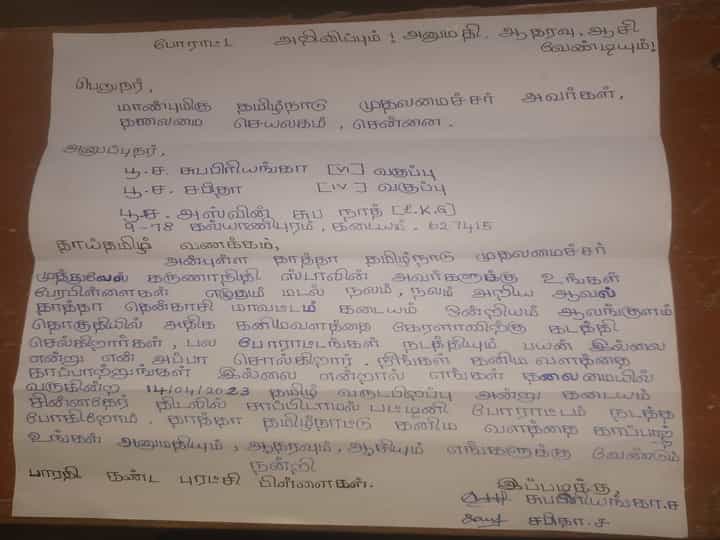 போராட்ட அறிவிப்பும்! அனுமதி, ஆதரவு, ஆசி
வேண்டியும்!
பெறுநர்,
மாண்புமிகு தமிழ்நாடு முதலமைச்சர் அவர்கள்,
தலைமை செயலகம், சென்னை.
அனுப்புநர்,
பூ.ச. சுபபிரியங்கா [VI] வகுப்பு
பூ.ச. சபிதா [IV] வகுப்பு
பூ.ச. அஸ்வின் சுப நாத் [L.K.G]
9-78 கல்யாணிபுரம், கடையம். 627415
தாய்தமிழ் வணக்கம்,
அன்புள்ள தாத்தா தமிழ்நாடு முதலமைச்சர்
முத்துவேல் கருணாநிதி ஸ்டாலின் அவர்களுக்கு உங்கள்
பேரபிள்ளைகள் எழுதும் மடல் நலம், நலம் அறிய ஆவல்
தாத்தா தென்காசி மாவட்டம் கடையம் ஒன்றியம் ஆலங்குளம்
தொகுதியில் அதிக கனிமவளத்தை கேரளாவிற்கு கடத்தி
செல்கிறார்கள், பல போராட்டங்கள் நடத்தியும் பயன் இல்லை
என்று என் அப்பா சொல்கிறார். நீங்கள் கனிம வளத்தை
காப்பாற்றுங்கள் இல்லை என்றால் எங்கள் தலைமையில்
வருகின்ற 14/04/2023 தமிழ் வருடபிறப்பு அன்று கடையம்
சின்னதேர் திடலில் சாப்பிடாமல் பட்டினி போராட்டம் நடத்த
போகிறோம். தாத்தா தமிழ்நாட்டு கனிம வளத்தை காப்பாற்ற
உங்கள் அனுமதியும், ஆதரவும், ஆசியும் எங்களுக்கு வேண்டும்
நன்றி
பாரதி கண்ட புரட்சி பிள்ளைகள்.
இப்படிக்கு,
சுபபிரியங்கா.ச
சபிதா.ச